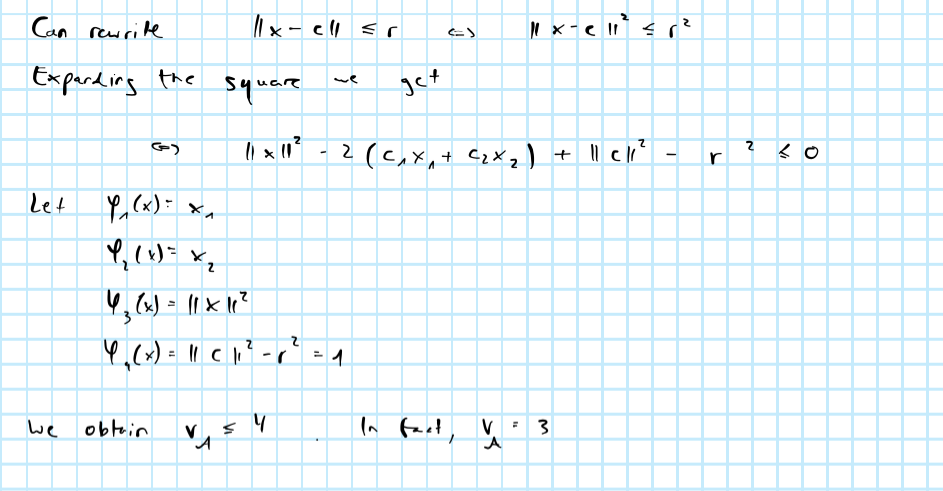 Can rewrite ‖x-c‖ ≤ r <=> ‖x-c‖² ≤ r²
Expanding the square we get
<=> ‖x‖² - 2 (c₁x₁ + c₂x₂) + ‖c‖² - r² ≤ 0
Let φ₁(x) = x₁
φ₂(x) = x₂
φ₃(x) = ‖x‖²
φ₄(x) = ‖c‖² - r² = 1
We obtain V_A ≤ 4. In fact, V_A = 3